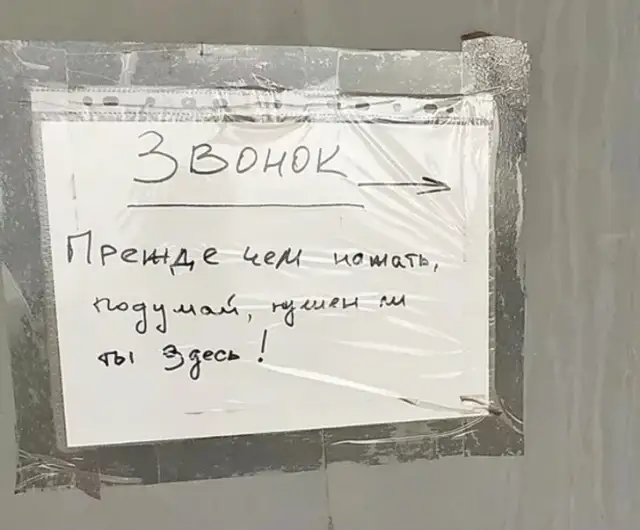 ЗВОНОК →
Прежде чем нажать,
подумай, нужен ли
ты здесь!